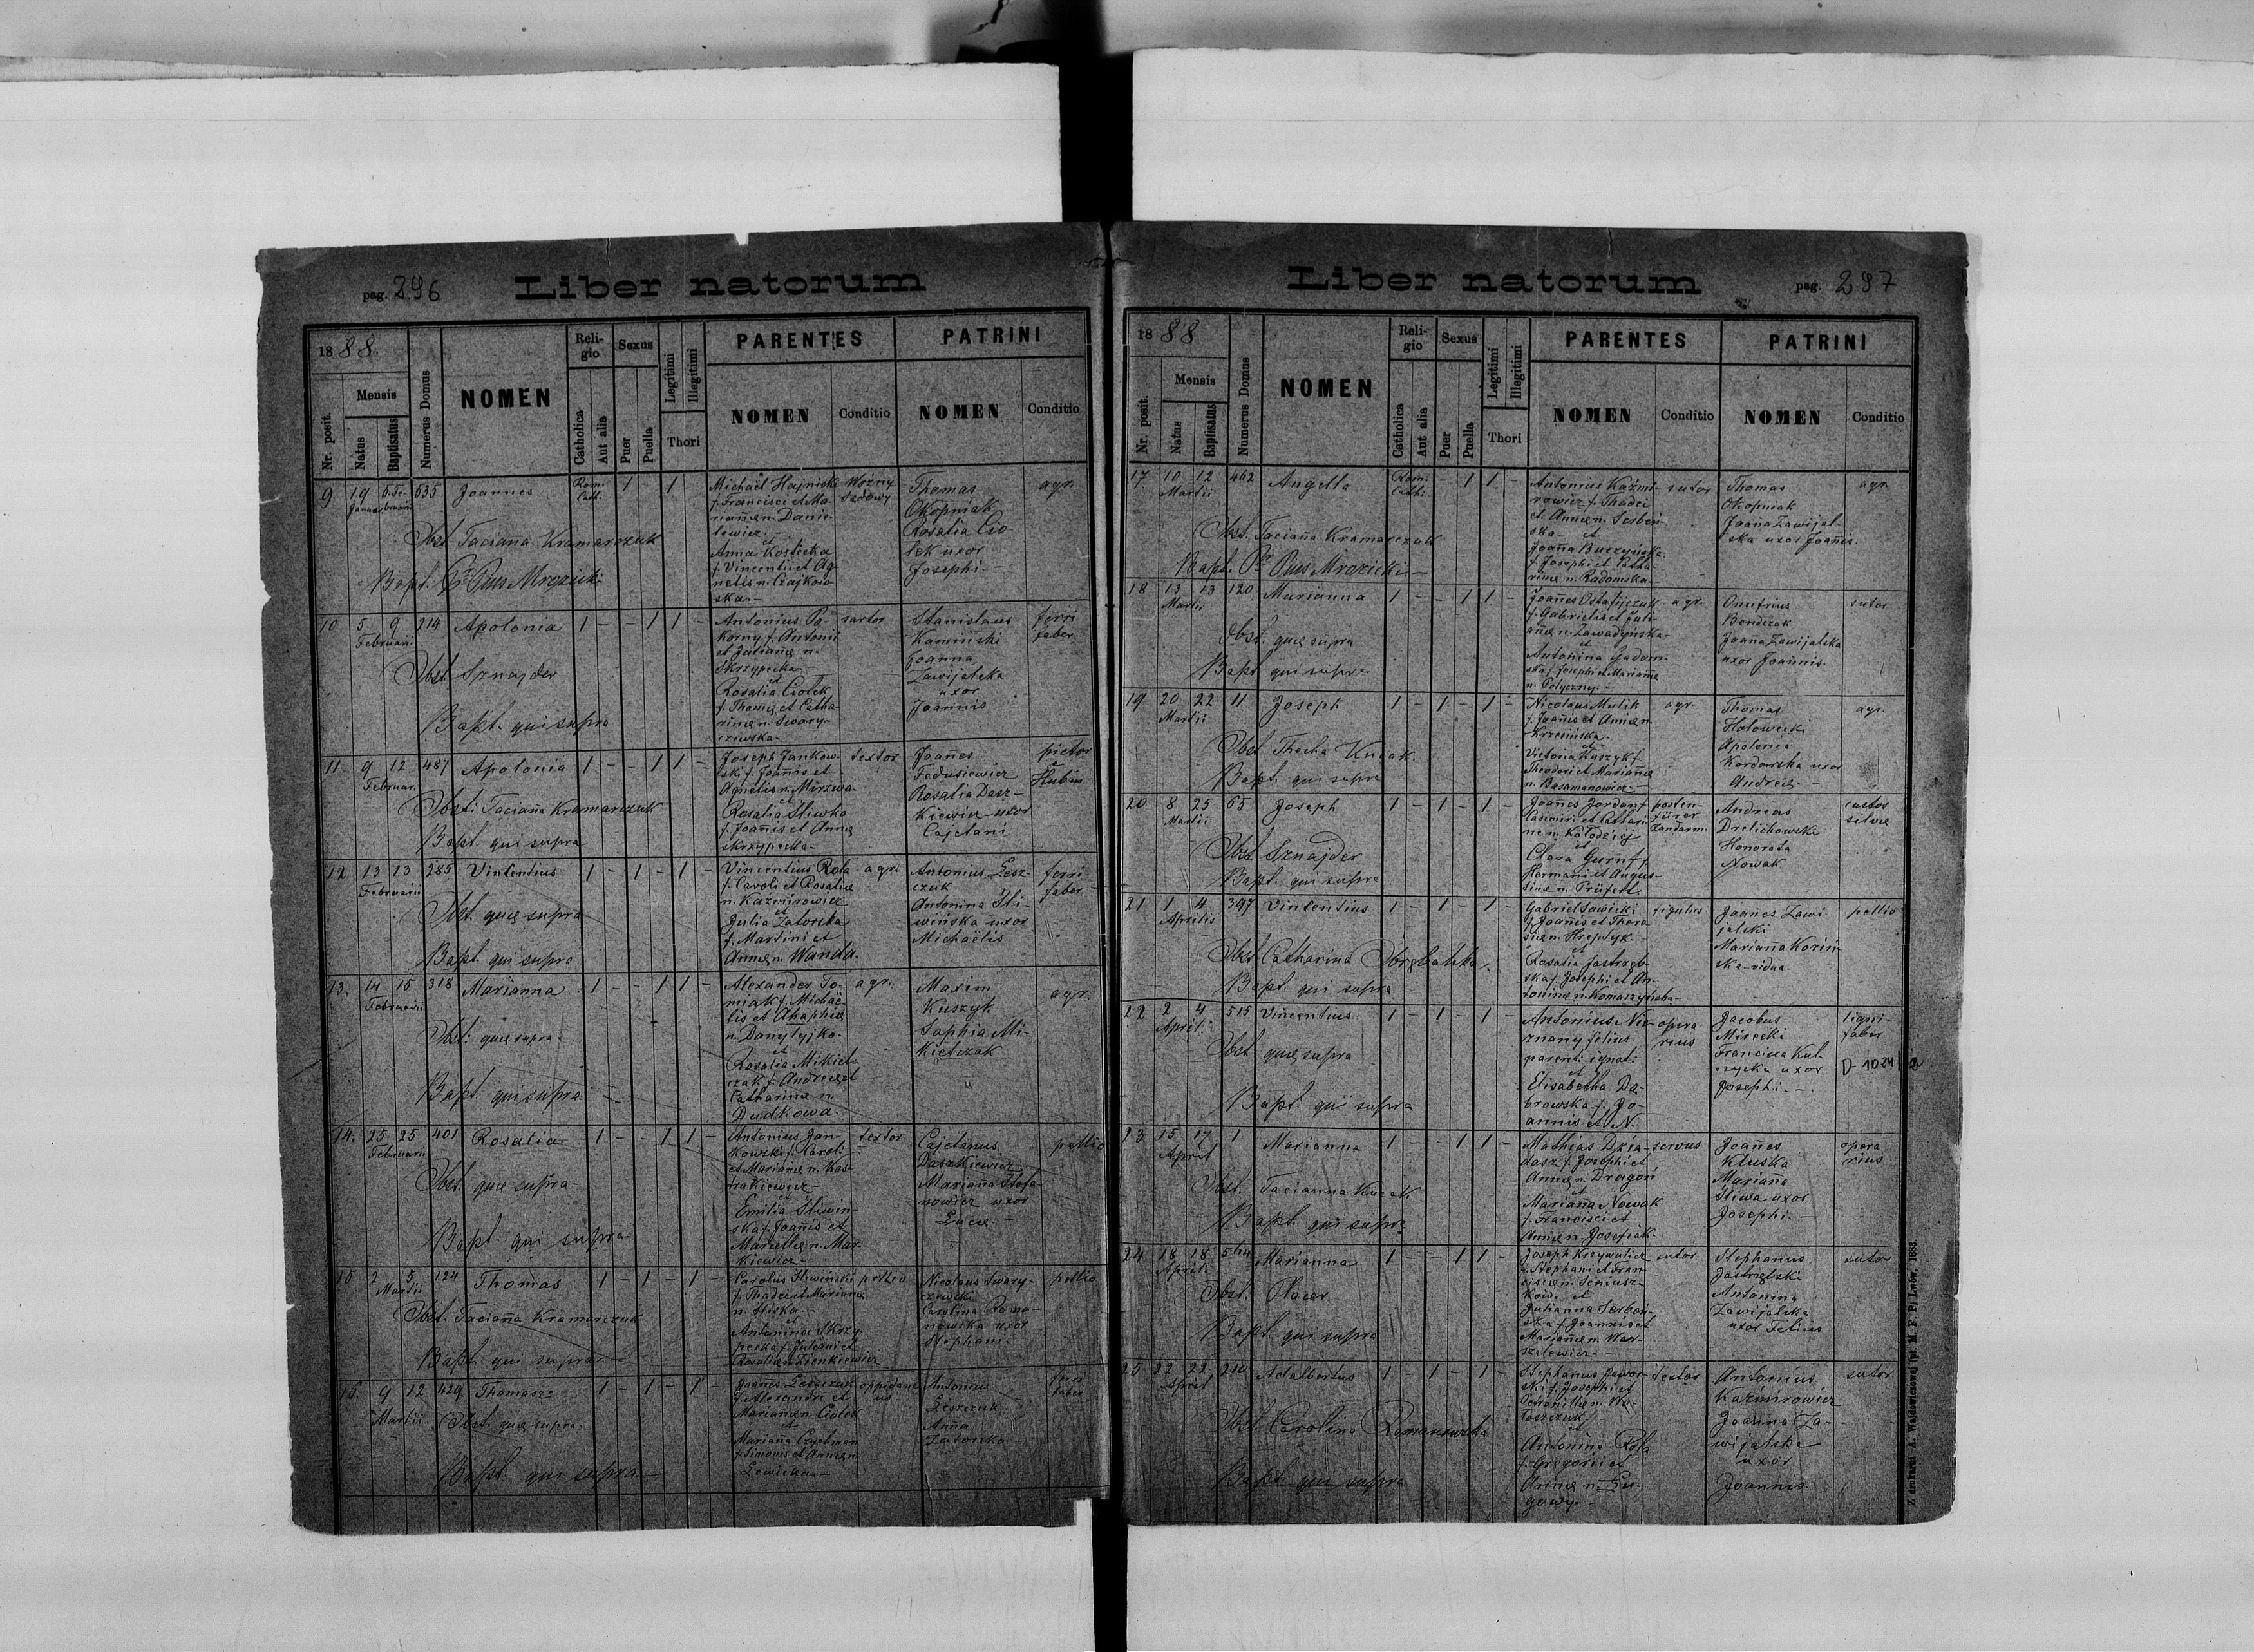 pag. 296 Liber natorum
1888.
Nr. posit.
Mensis
Natus
Baptisatus
Numerus Domus
NOMEN
Reli-
gio
Catholica
Aut alia
Sexus
Puer
Puella
Legitimi
Illegitimi
Thori
PARENTES
NOMEN
Conditio
PATRINI
NOMEN
Conditio
9 19 Januar. 5. Fe- bruarii 535 Joannes Rom. Cath. - 1 - 1 -
Obst. Taciana Kramarczuk
Bapt. Pr. Pius Mrozicki
Michaël Hajniski
f. Francisci et Ma-
riannæ n. Danie-
lewicz
et
Anna Kostecka
f. Vincentii et Ag-
netis n. Czajkow-
ska.-
Woźny
sądowy
Thomas
Okopniak
Rosalia Cio
lek uxor
Josephi.-
agr.
10 5 9 Februarii 214 Apolonia 1 - - 1 1 -
Obst. Sznajder
Bapt. qui supra
Antonius Po-
korny f. Antonii
et Julianæ n.
Skrzypecka.-
et
Rosalia Ciolek
f. Thomæ et Catha-
rinæ n. Swary-
czewska.-
sartor
Stanislaus
Kamiński
Joanna
Zawijalska
uxor
Joannis
ferri
faber
11 9 12 Februar. 487 Apolonia 1 - - 1 1 -
Obst. Taciana Kramarczuk
Bapt. qui supra
Joseph Jankow-
ski f. Joannis et
Agnetis n. Mirzwa-
et
Rosalia Sliwka
f. Joannis et Annæ
Skrzypecka.-
textor
Joannes
Fedusiewicz
Rosalia Dasz-
kiewicz uxor
Cajetani
pictor
12 13 13 Februarii 285 Vincentius 1 - 1 - 1 -
Obst. quæ supra
Bapt. qui supra
Vincentius Rola
f. Caroli et Rosaliæ
n. Kazmirowicz
et
Julia Zatorska
f. Martini et
Annæ n. Wanda.
agr.
Antonius Lesz-
czuk
Antonina Sli-
wińska uxor
Michaëlis
ferri
faber.-
13. 14 15 Februarii 318 Marianna 1 - - 1 1 -
Obst. quæ supra.
Bapt. qui supra
Alexander To-
miak f. Michaë-
lis et Ahaphiæ
n. Danyłyjko.
et
Rosalia Mikiet-
czak f. Andreæ et
Catharinæ n.
Dudkowa.
agr.
Maxim
Kuszyk
Sophia Mi-
kietczak
agr.
14. 25 25 Februarii 401 Rosalia 1 - - 1 1 -
Obst. quæ supra-
Bapt. qui supra
Antonius Jan-
kowski f. Caroli
et Mariannæ n. Kos-
trakiewicz-
et
Emilia Sliwin-
ska f. Joannis et
Marcellæ n. Mar-
kiewicz-
textor
Cajetanus
Daszkiewicz
Marianna Stefa-
nowicz uxor
Lucæ.-
pellio
15 2 5 Martii 124 Thomas 1 - 1 - 1 -
Obst. Taciana Kramarczuk
Bapt. qui supra
Carolus Sliwiński
f. Thadei et Mariannæ
n. Sliska.-
et
Antonina Skrzy-
pecka f. Juliani et
Rosaliæ n. Zienkiewicz
pellio
Nicolaus Swary-
czewski
Carolina Roma-
nowska uxor
Stephani.-
pellio
16. 9 12 Martii 429 Thomas 1 - 1 - 1 -
Obst. quæ supra.
Bapt. qui supra.-
Joannes Leszczuk
f. Alexandri et
Mariannæ n. Ciolek
et
Marianna
f. Simonis et Annæ n.
Lewicka.-
oppidanus
Antonius
Leszczuk
Anna
Zatorska
ferri
faber
Liber natorum pag. 297
1888
Nr. posit.
Mensis
Natus
Baptisatus
Numerus Domus
NOMEN
Reli-
gio
Catholica
Aut alia
Sexus
Puer
Puella
Legitimi
Illegitimi
Thori
PARENTES
NOMEN
Conditio
PATRINI
NOMEN
Conditio
17. 10 12 Martii 462 Angella Rom. Cath. - - 1 1 -
Obst. Taciana Kramarczuk
Bapt. Pr. Pius Mrozicki.-
Antonius Kaźmi-
rowicz f. Thadei
et Annæ n. Serbeń-
ska- et
Joanna Buczyńska
f. Josephi et Catha-
rinæ n. Radomska.-
sutor
Thomas
Okopniak
Joanna Zawijal-
ska uxor Joannis.
agr.
18 13 13 Martii 120 Marianna 1 - - 1 1 -
Obst. quæ supra
Bapt. qui supra
Joannes Ostafijczuk
f. Gabrielis et Juli-
annæ n. Zawadyńska-
et
Antonina Gadom-
ska f. Josephi et Mariannæ
n. Potyczny.-
agr.
Onufrius
Bendzak
Joanna Zawijalska
uxor Joannis.
sutor
19 20 22 Martii 11 Joseph 1 - 1 - 1 -
Obst. Thecla Kuzak.
Bapt. qui supra
Nicolaus Mulik
f. Joannis et Annæ n.
Krzesińska.
et
Victoria Kuszyk f.
Theodori et Mariannæ
n. Basamanowicz-
agr.
Thomas
Hołowecki
Apolonia
Kordowska uxor
Andreæ.-
agr.
20 8 25 Martii 65 Joseph 1 - 1 - 1 -
Obst. Sznajder
Bapt. qui supra
Joannes Jordan f.
Casimiri et Cathari-
næ n. Kołodziej
et
Clara Gurn f.
Hermani et Augus-
tinæ n. Prüfert.
posten-
fürer
żandarm.
Andreas
Dretichowski
Honorata
Nowak
custos
silvæ
21 1 4 Aprilis 397 Vincentius 1 - 1 - 1 -
Obst. Catharina Obrębalska.
Bapt. qui supra
Gabriel Sawicki
f. Joannis et There-
siæ n. Hreptyk.-
et
Rosalia Jastrzęb-
ska f. Josephi et An-
toninæ n. Komaszyńska-
figulus
Joannes Zawi
jalski
Marianna Koziń-
ska-vidua.-
pellio
22 2 4 April. 515 Vincentius 1 - 1 - 1 -
Obst. quæ supra
Bapt. qui supra
Antonius Nie-
znany filius
parenti ignot.
et
Elisabetha Da-
browska f. Jo-
annis et N.
opera
rius
Jacobus
Mirecki
Francisca Kul-
czycka uxor
Josephi.-
ligni-
faber
D-1024
23 15 17 April 1 Marianna 1 - - 1 1 -
Obst. Tacianna Kuzak
Bapt. qui supra
Mathias Dzia-
dosz f. Josephi et
Annæ n. Dragoń
et
Marianna Nowak
f. Francisci et
Annæ n. Josefiak.
servus
Joannes
Kluska
Marianna
Sliwa uxor
Josephi.-
opera
rius
24 18 18 April. 544 Marianna 1 - - 1 1 -
Obst. Placer
Bapt. qui supra
Joseph Krzywulicz
f. Stephani et Fran-
ciscæ n. Seniusz-
kow. et
Julianna Serbeń-
ska f. Joannis et
Mariannæ n. War-
szalewicz.-
sutor
Stephanus
Jastrzębski
Antonina
Zawijalska
uxor Felicis
sutor
25 22 22 April 210 Adalbertus 1 - 1 - 1 -
Obst. Carolina Romanowska
Bapt. qui supra
Stephanus Jawor-
ski f. Josephi et
n. Wo-
łoszczuk.
et
Antonina Rola
f. Gregorii et
Annæ n. Łu-
gowy.-
textor
Antonius
Kazmirowicz
Joanna Za-
wijalska
uxor
Joannis
sutor
Z drukarni A. Wajdowiczowej (pz. M. F. P) Lwów, 1883.